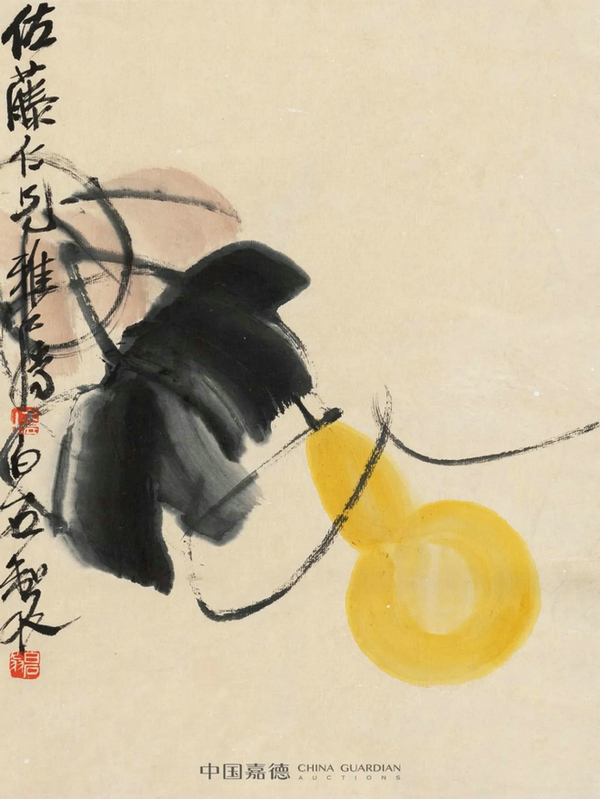 佐藤仁兄雅屬白石製
白石翁
中国嘉德 CHINA GUARDIAN
AUCTIONS